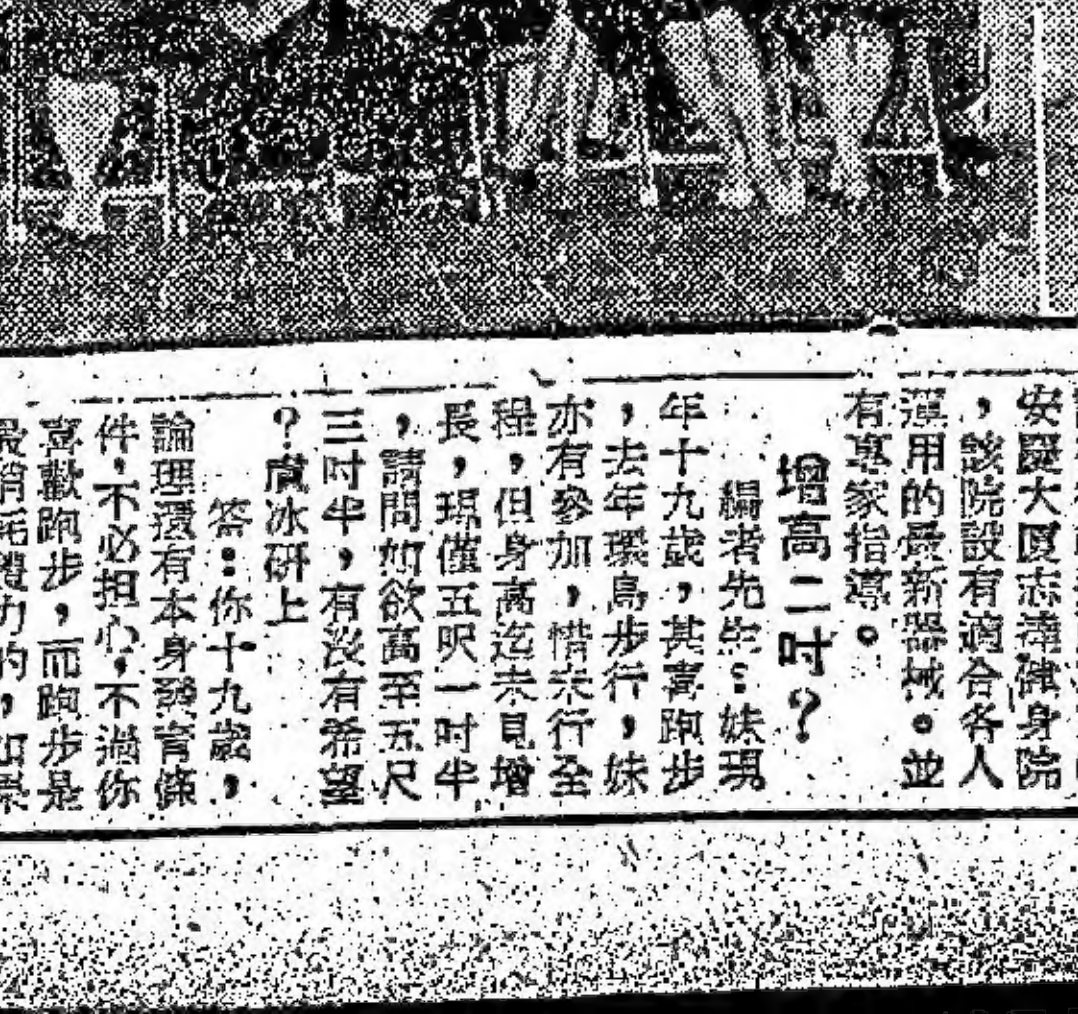 安慶大厦志濤健身院
，該院設有適合各人
運用的最新器械。並
有專家指導。
增高二吋？
編者先生：妹現
年十九歲，甚喜跑步
，去年環島步行，妹
亦有參加，惜未行全
程，但身高迄未見增
長，現僅五呎一吋半
，請問如欲高至五尺
三吋半，有沒有希望
？冰研上
答：你十九歲，
論理還有本身發育條
件，不必担心，不過你
喜歡跑步，而跑步是
最消耗體力的，如果